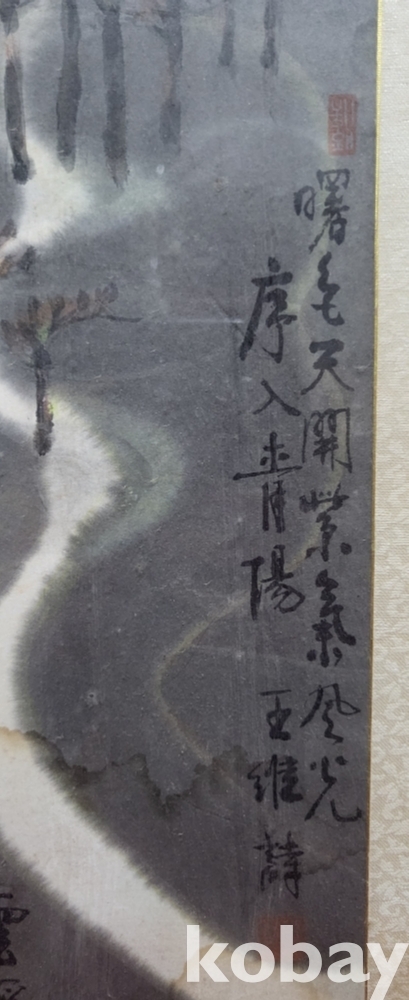 曙色天開紫氣風光
序入青陽 王維
雲
kobay